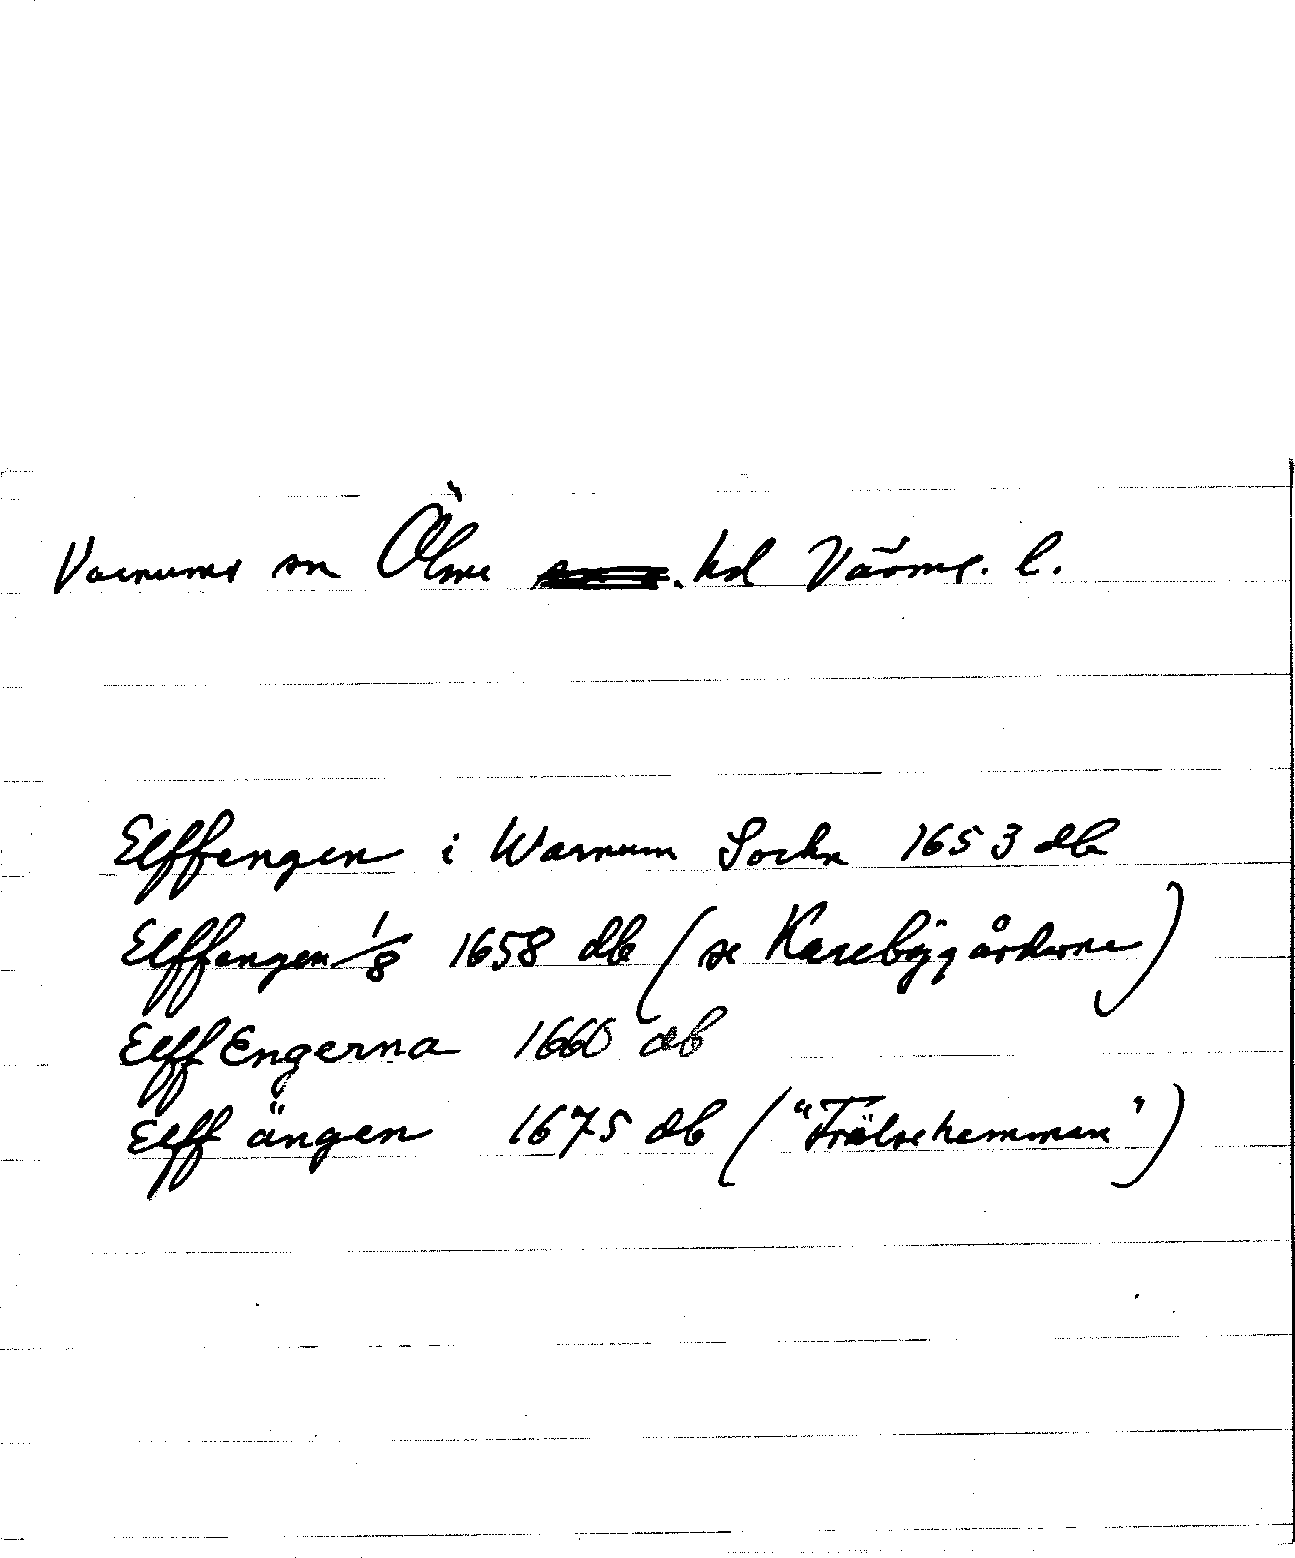 Varnums sn Ölme hd Värml. l.
Elffengen i Warnum Sockn 1653 db
Elffengen 1/8 1658 db (se Karebÿgårdarne)
Elff Engerna 1660 db
Elff ängen 1675 db ("Frälsehemman")